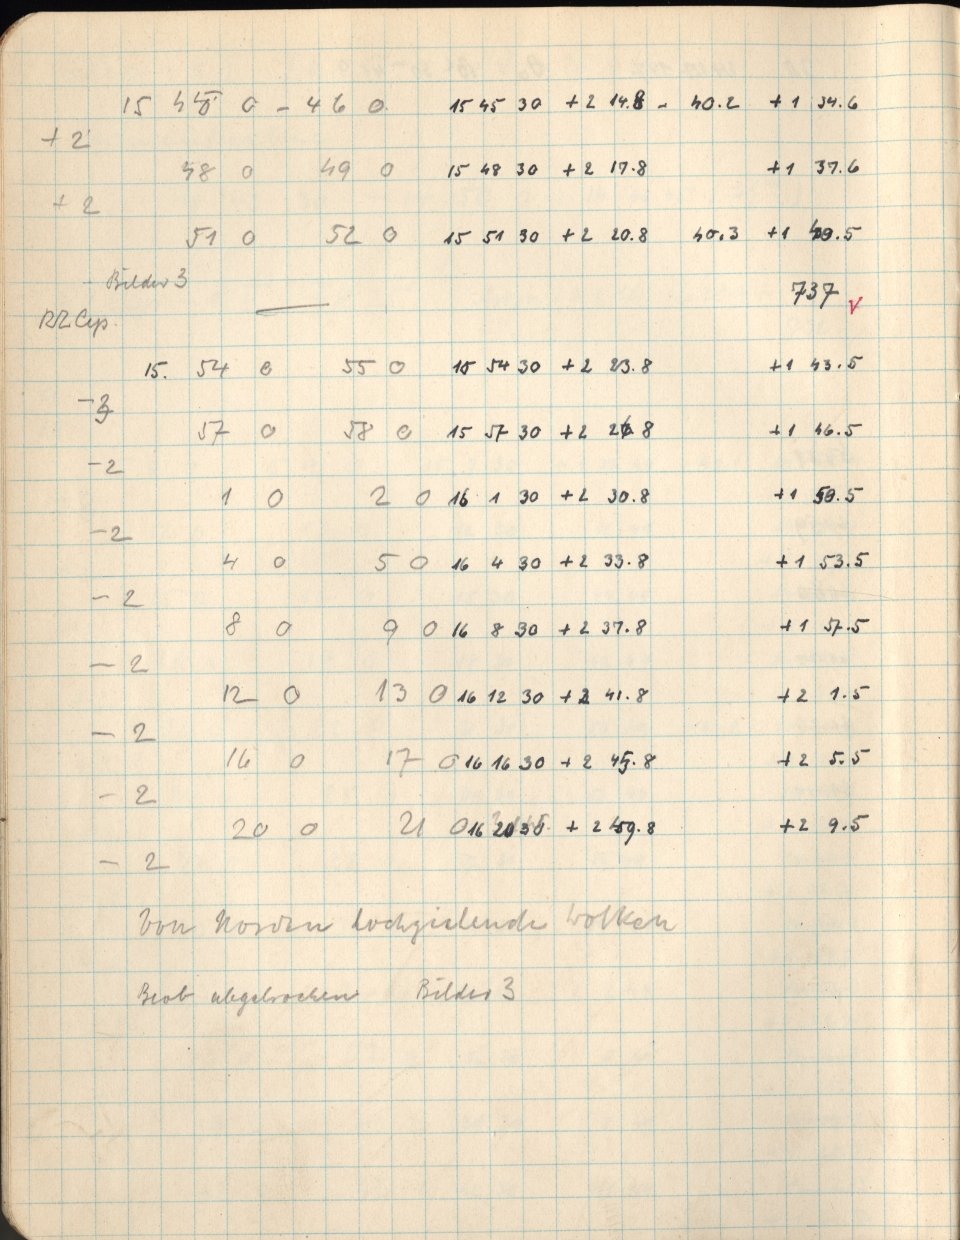 15 45 0 - 46 0 15 45 30 +2 14.8 - 40.2 +1 34.6
+2
48 0 49 0 15 48 30 +2 17.8 +1 37.6
+2
51 0 52 0 15 51 30 +2 20.8 40.3 +1 40.5
Bilder 3
737 v
RZ Cep.
15. 54 0 55 0 15 54 30 +2 23.8 +1 43.5
57 0 58 0 15 57 30 +2 26.8 +1 46.5
-2
1 0 2 0 16 1 30 +2 30.8 +1 50.5
-2
4 0 5 0 16 4 30 +2 33.8 +1 53.5
-2
8 0 9 0 16 8 30 +2 37.8 +1 57.5
-2
12 0 13 0 16 12 30 +2 41.8 +2 1.5
-2
16 0 17 0 16 16 30 +2 45.8 +2 5.5
-2
20 0 21 0 16 20 30 +2 49.8 +2 9.5
-2
Von Norden hochziehende Wolken
Beob abgebrochen Bilder 3